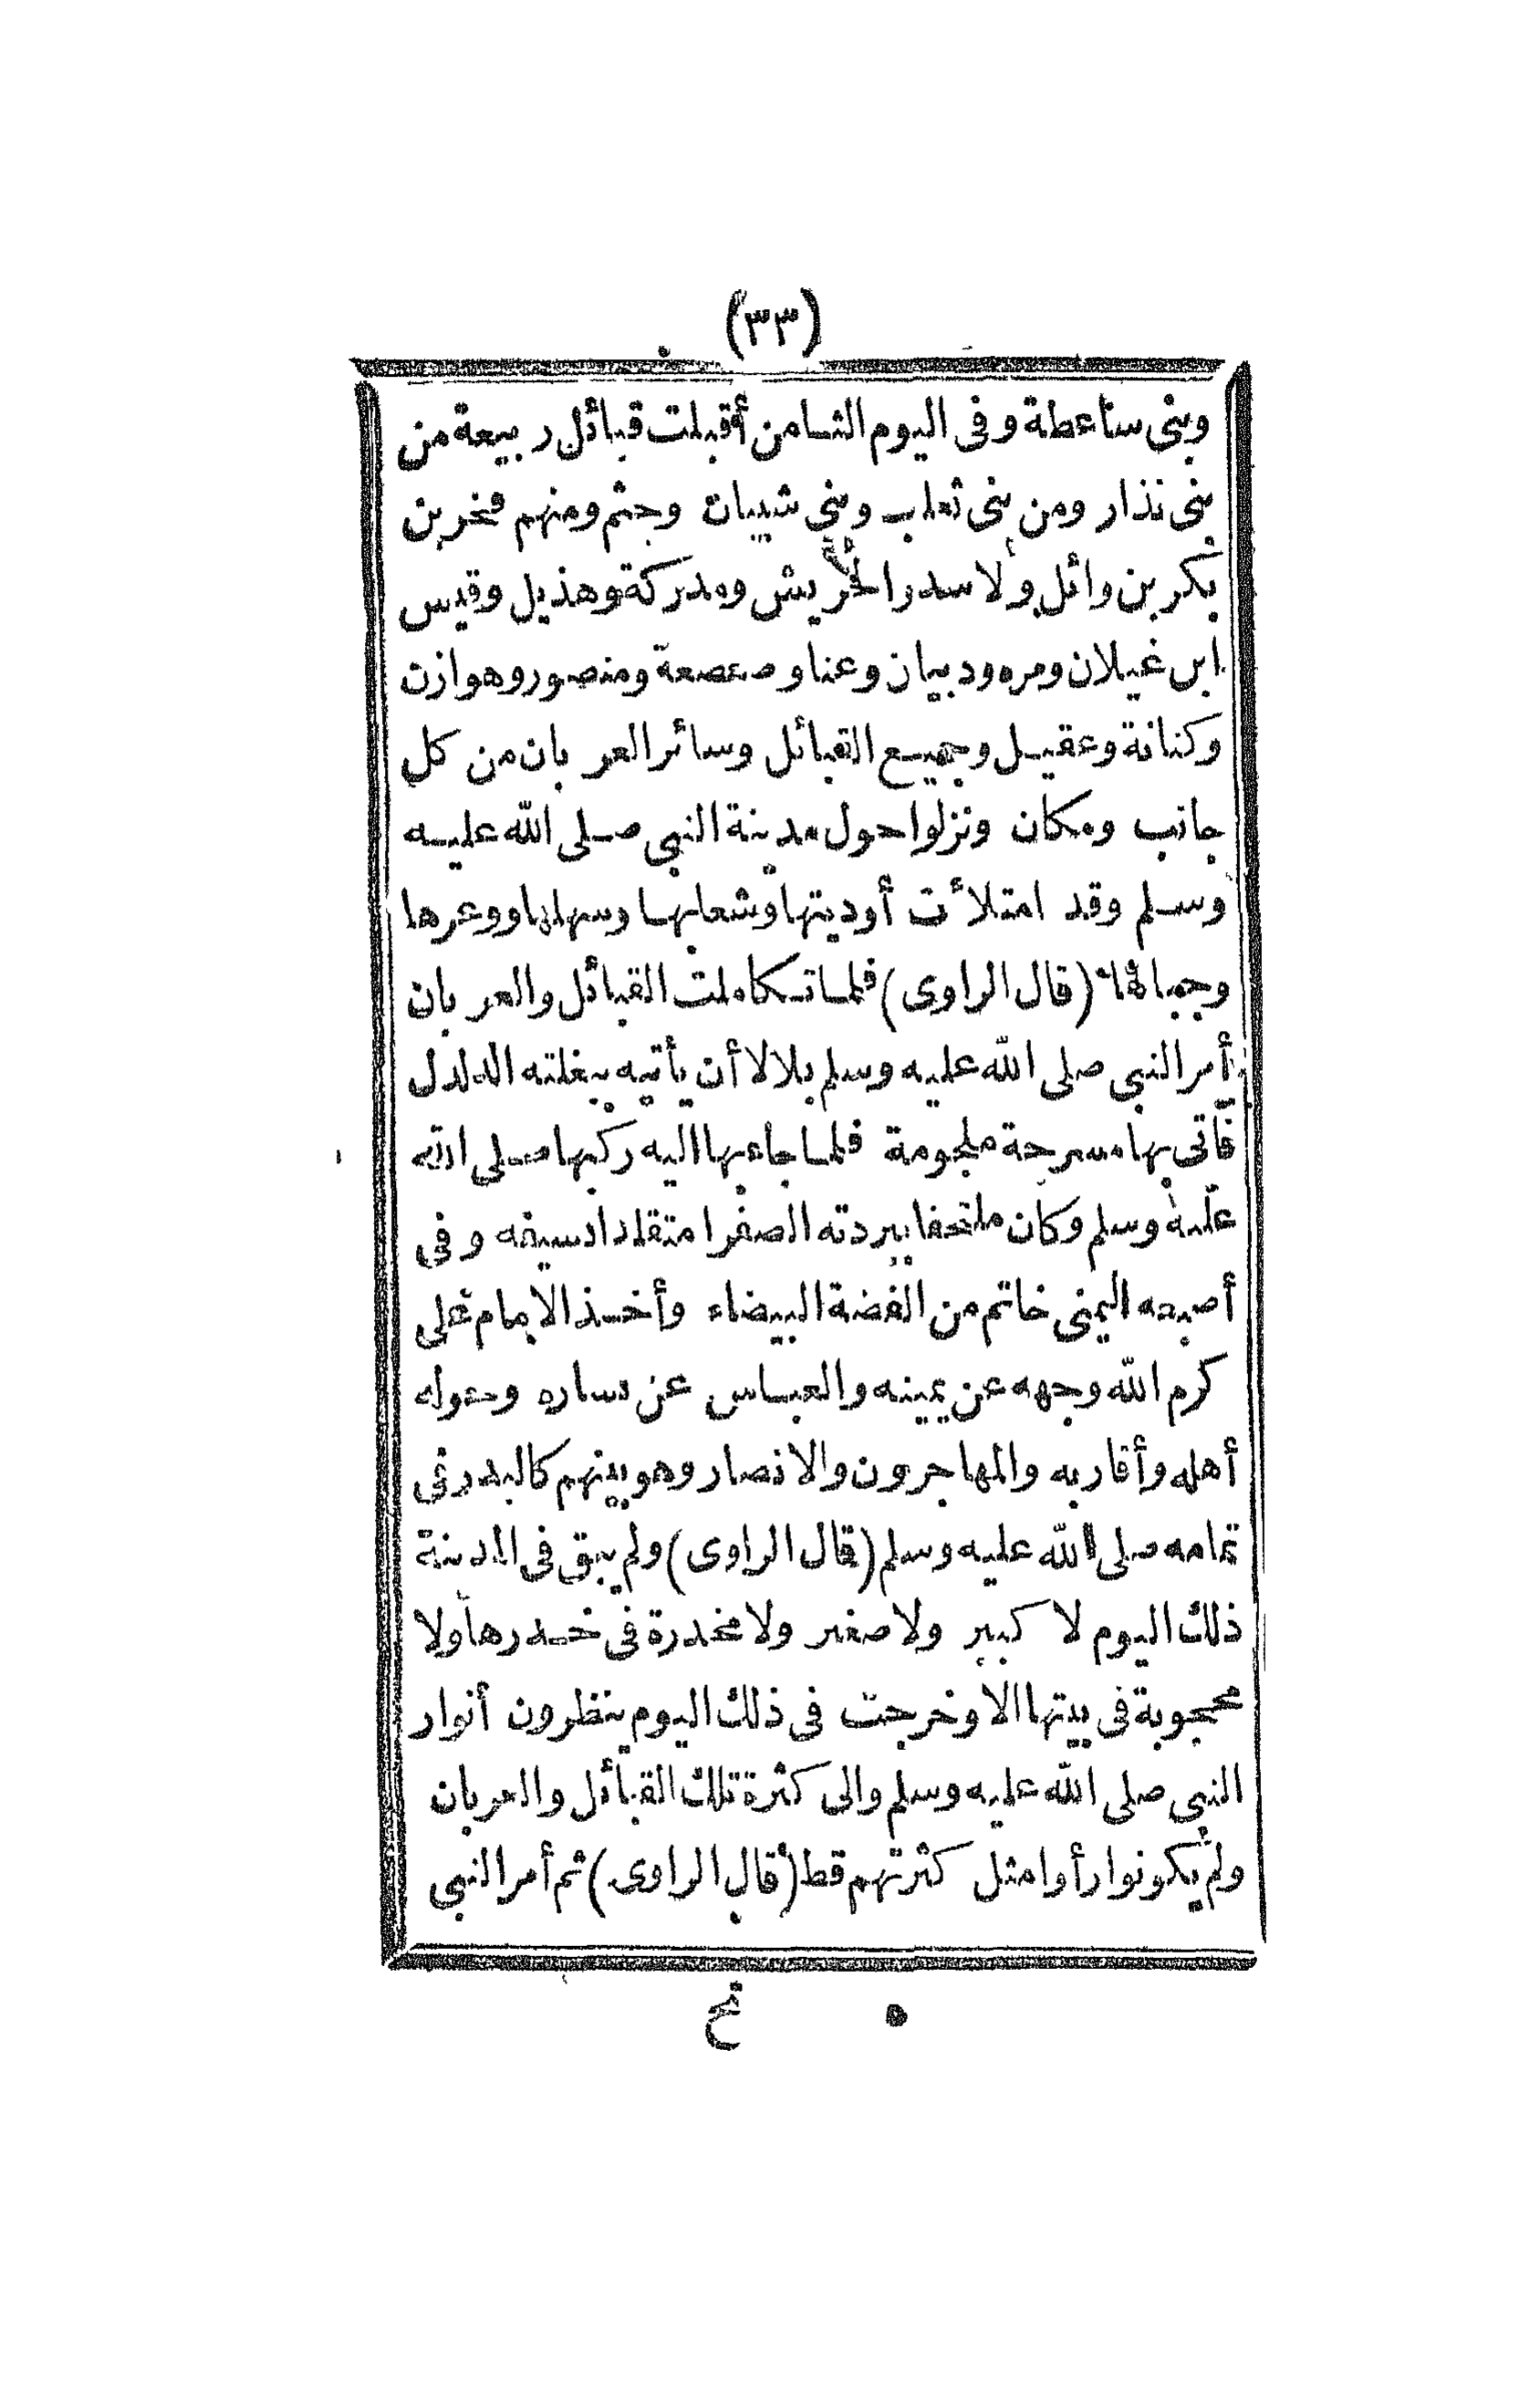 (٣٣)
وبنى ساعطة وفى اليوم الثامن أقبلت قبائل ربيعة من
بنى نذار ومن بنى ثعلب وبنى شيبان وجثم ومنهم فخر بن
بكر بن وائل ولا سد والحريش ومدركة وهذيل وقيس
ابن غيلان ومره ودبيان وعنا وصعصعة ومنصور وهوازن
وكنانة وعقيل وجميع القبائل وسائر العربان من كل
جانب ومكان ونزلوا حول مدينة النبى صلى الله عليه
وسلم وقد امتلأت أوديتها وشعابها وسهلها ووعرها
وجبالها (قال الراوى) فلما تكاملت القبائل والعربان
أمر النبى صلى الله عليه وسلم بلالا أن يأتيه ببغلته الدلدل
فأتى بها مسرجة ملجومة فلما جاء بها اليه ركبها صلى الله
عليه وسلم وكان ملتحفا ببردته الصفرا متقلدا بسيفه وفى
أصبعه اليمنى خاتم من الفضة البيضاء وأخذ الامام على
كرم الله وجهه عن يمينه والعباس عن يساره وحوله
أهله وأقاربه والمهاجرون والانصار وهو بينهم كالبدر فى
تمامه صلى الله عليه وسلم (قال الراوى) ولم يبق فى المدينة
ذلك اليوم لا كبير ولا صغير ولا مخدرة فى خدرها ولا
محجوبة فى بيتها الا وخرجت فى ذلك اليوم ينظرون أنوار
النبى صلى الله عليه وسلم والى كثرة تلك القبائل والعربان
ولم يكونوا رأوا مثل كثرتهم قط (قال الراوى) ثم أمر النبى
٥ فح